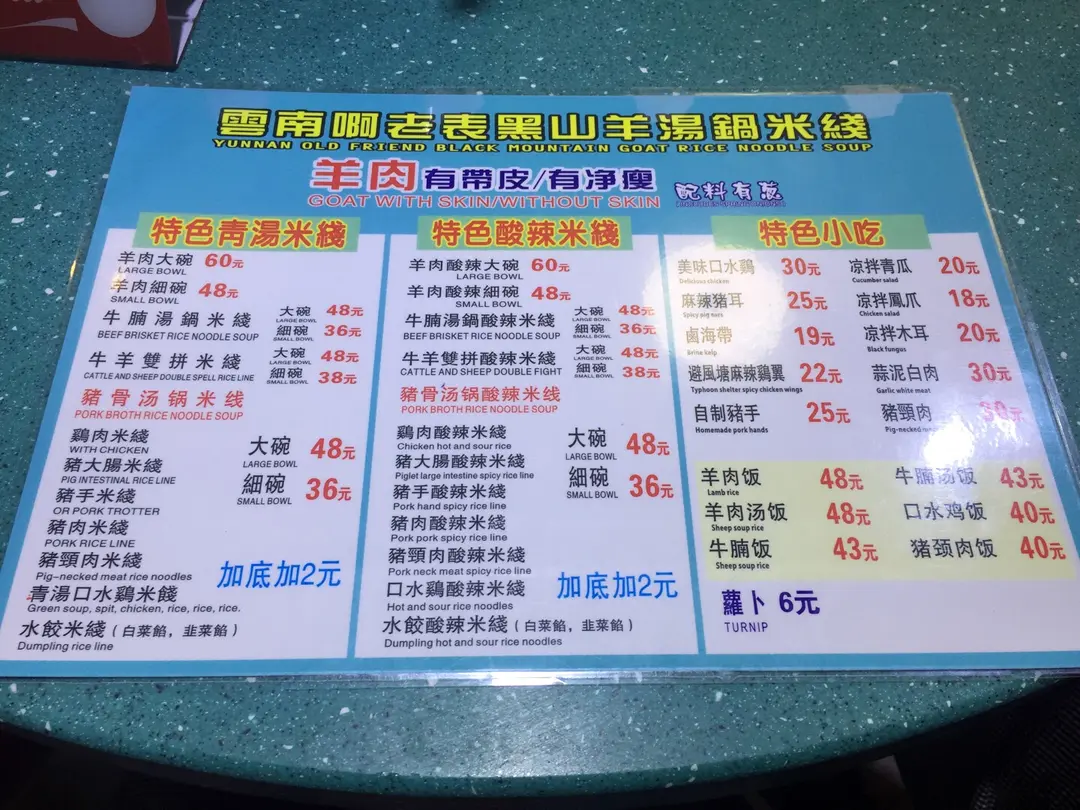 雲南啊老表黑山羊湯鍋米綫
YUNNAN OLD FRIEND BLACK MOUNTAIN GOAT RICE NOODLE SOUP
羊肉 有帶皮/有净瘦 配料有蔥
GOAT WITH SKIN/WITHOUT SKIN
特色青湯米綫
羊肉大碗 60元
LARGE BOWL
羊肉細碗 48元
SMALL BOWL
牛腩湯鍋米綫 大碗 48元
LARGE BOWL
BEEF BRISKET RICE NOODLE SOUP 細碗 36元
SMALL BOWL
牛羊雙拼米綫 大碗 48元
LARGE BOWL
CATTLE AND SHEEP DOUBLE SPELL RICE LINE 細碗 38元
SMALL BOWL
豬骨汤锅米线
PORK BROTH RICE NOODLE SOUP
鷄肉米綫 大碗 48元
WITH CHICKEN LARGE BOWL
豬大腸米綫 細碗 36元
PIG INTESTINAL RICE LINE SMALL BOWL
豬手米綫
OR PORK TROTTER
豬肉米綫
PORK RICE LINE
豬頸肉米綫
Pig-necked meat rice noodles
加底加2元
青湯口水鷄米餞
Green soup, spit, chicken, rice, rice, rice.
水餃米綫（白菜餡，韭菜餡）
Dumpling rice line
特色酸辣米綫
羊肉酸辣大碗 60元
LARGE BOWL
羊肉酸辣細碗 48元
SMALL BOWL
牛腩湯鍋酸辣米綫 大碗 48元
LARGE BOWL
BEEF BRISKET RICE NOODLE SOUP 細碗 36元
SMALL BOWL
牛羊雙拼酸辣米綫 大碗 48元
LARGE BOWL
CATTLE AND SHEEP DOUBLE FIGHT 細碗 38元
SMALL BOWL
豬骨汤锅酸辣米线
PORK BROTH RICE NOODLE SOUP
鷄肉酸辣米綫 大碗 48元
Chicken hot and sour rice LARGE BOWL
豬大腸酸辣米綫 細碗 36元
Piglet large intestine spicy rice line SMALL BOWL
豬手酸辣米綫
Pork hand spicy rice line
豬肉酸辣米綫
Pork pork spicy rice line
豬頸肉酸辣米綫
Pork neck meat spicy rice line
加底加2元
口水鷄酸辣米綫
Hot and sour rice noodles
水餃酸辣米綫（白菜餡，韭菜餡）
Dumpling hot and sour rice noodles
特色小吃
美味口水鷄 30元 凉拌青瓜 20元
Delicious chicken Cucumber salad
麻辣豬耳 25元 凉拌鳳爪 18元
Spicy pig ears Chicken salad
鹵海帶 19元 凉拌木耳 20元
Brine kelp Black fungus
避風塘麻辣鷄翼 22元 蒜泥白肉 30元
Typhoon shelter spicy chicken wings Garlic white meat
自制豬手 25元 豬頸肉
Homemade pork hands Pig-necked
羊肉饭 48元 牛腩汤饭 43元
Lamb rice
羊肉汤饭 48元 口水鸡饭 40元
Sheep soup rice
牛腩饭 43元 猪颈肉饭 40元
Sheep soup rice
蘿卜 6元
TURNIP